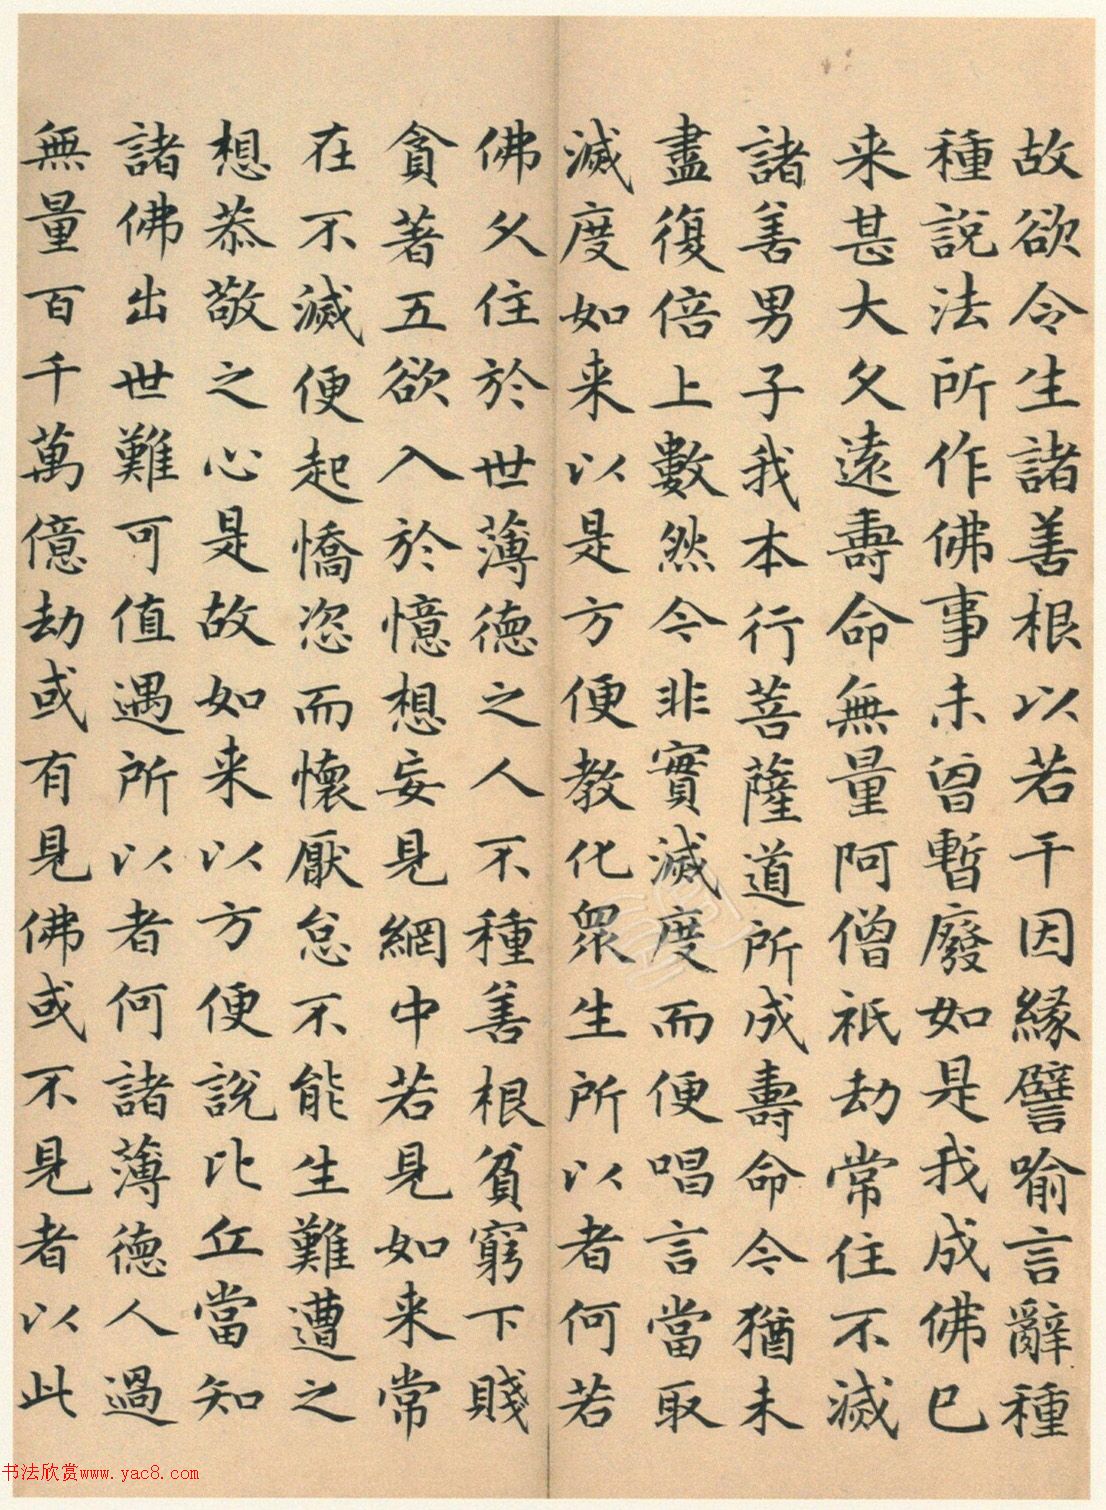 故欲令生諸善根以若干因緣譬喻言辭種
種說法所作佛事未曾暫廢如是我成佛已
来甚大久遠壽命無量阿僧祇劫常住不滅
諸善男子我本行菩薩道所成壽命今猶未
盡復倍上數然今非實滅度而便唱言當取
滅度如来以是方便教化衆生所以者何若
佛久住於世薄德之人不種善根貧窮下賤
貪著五欲入於憶想妄見網中若見如来常
在不滅便起憍恣而懷厭怠不能生難遭之
想恭敬之心是故如来以方便說比丘當知
諸佛出世難可值遇所以者何諸薄德人過
無量百千萬億劫或有見佛或不見者以此
书法欣赏www.yac8.com